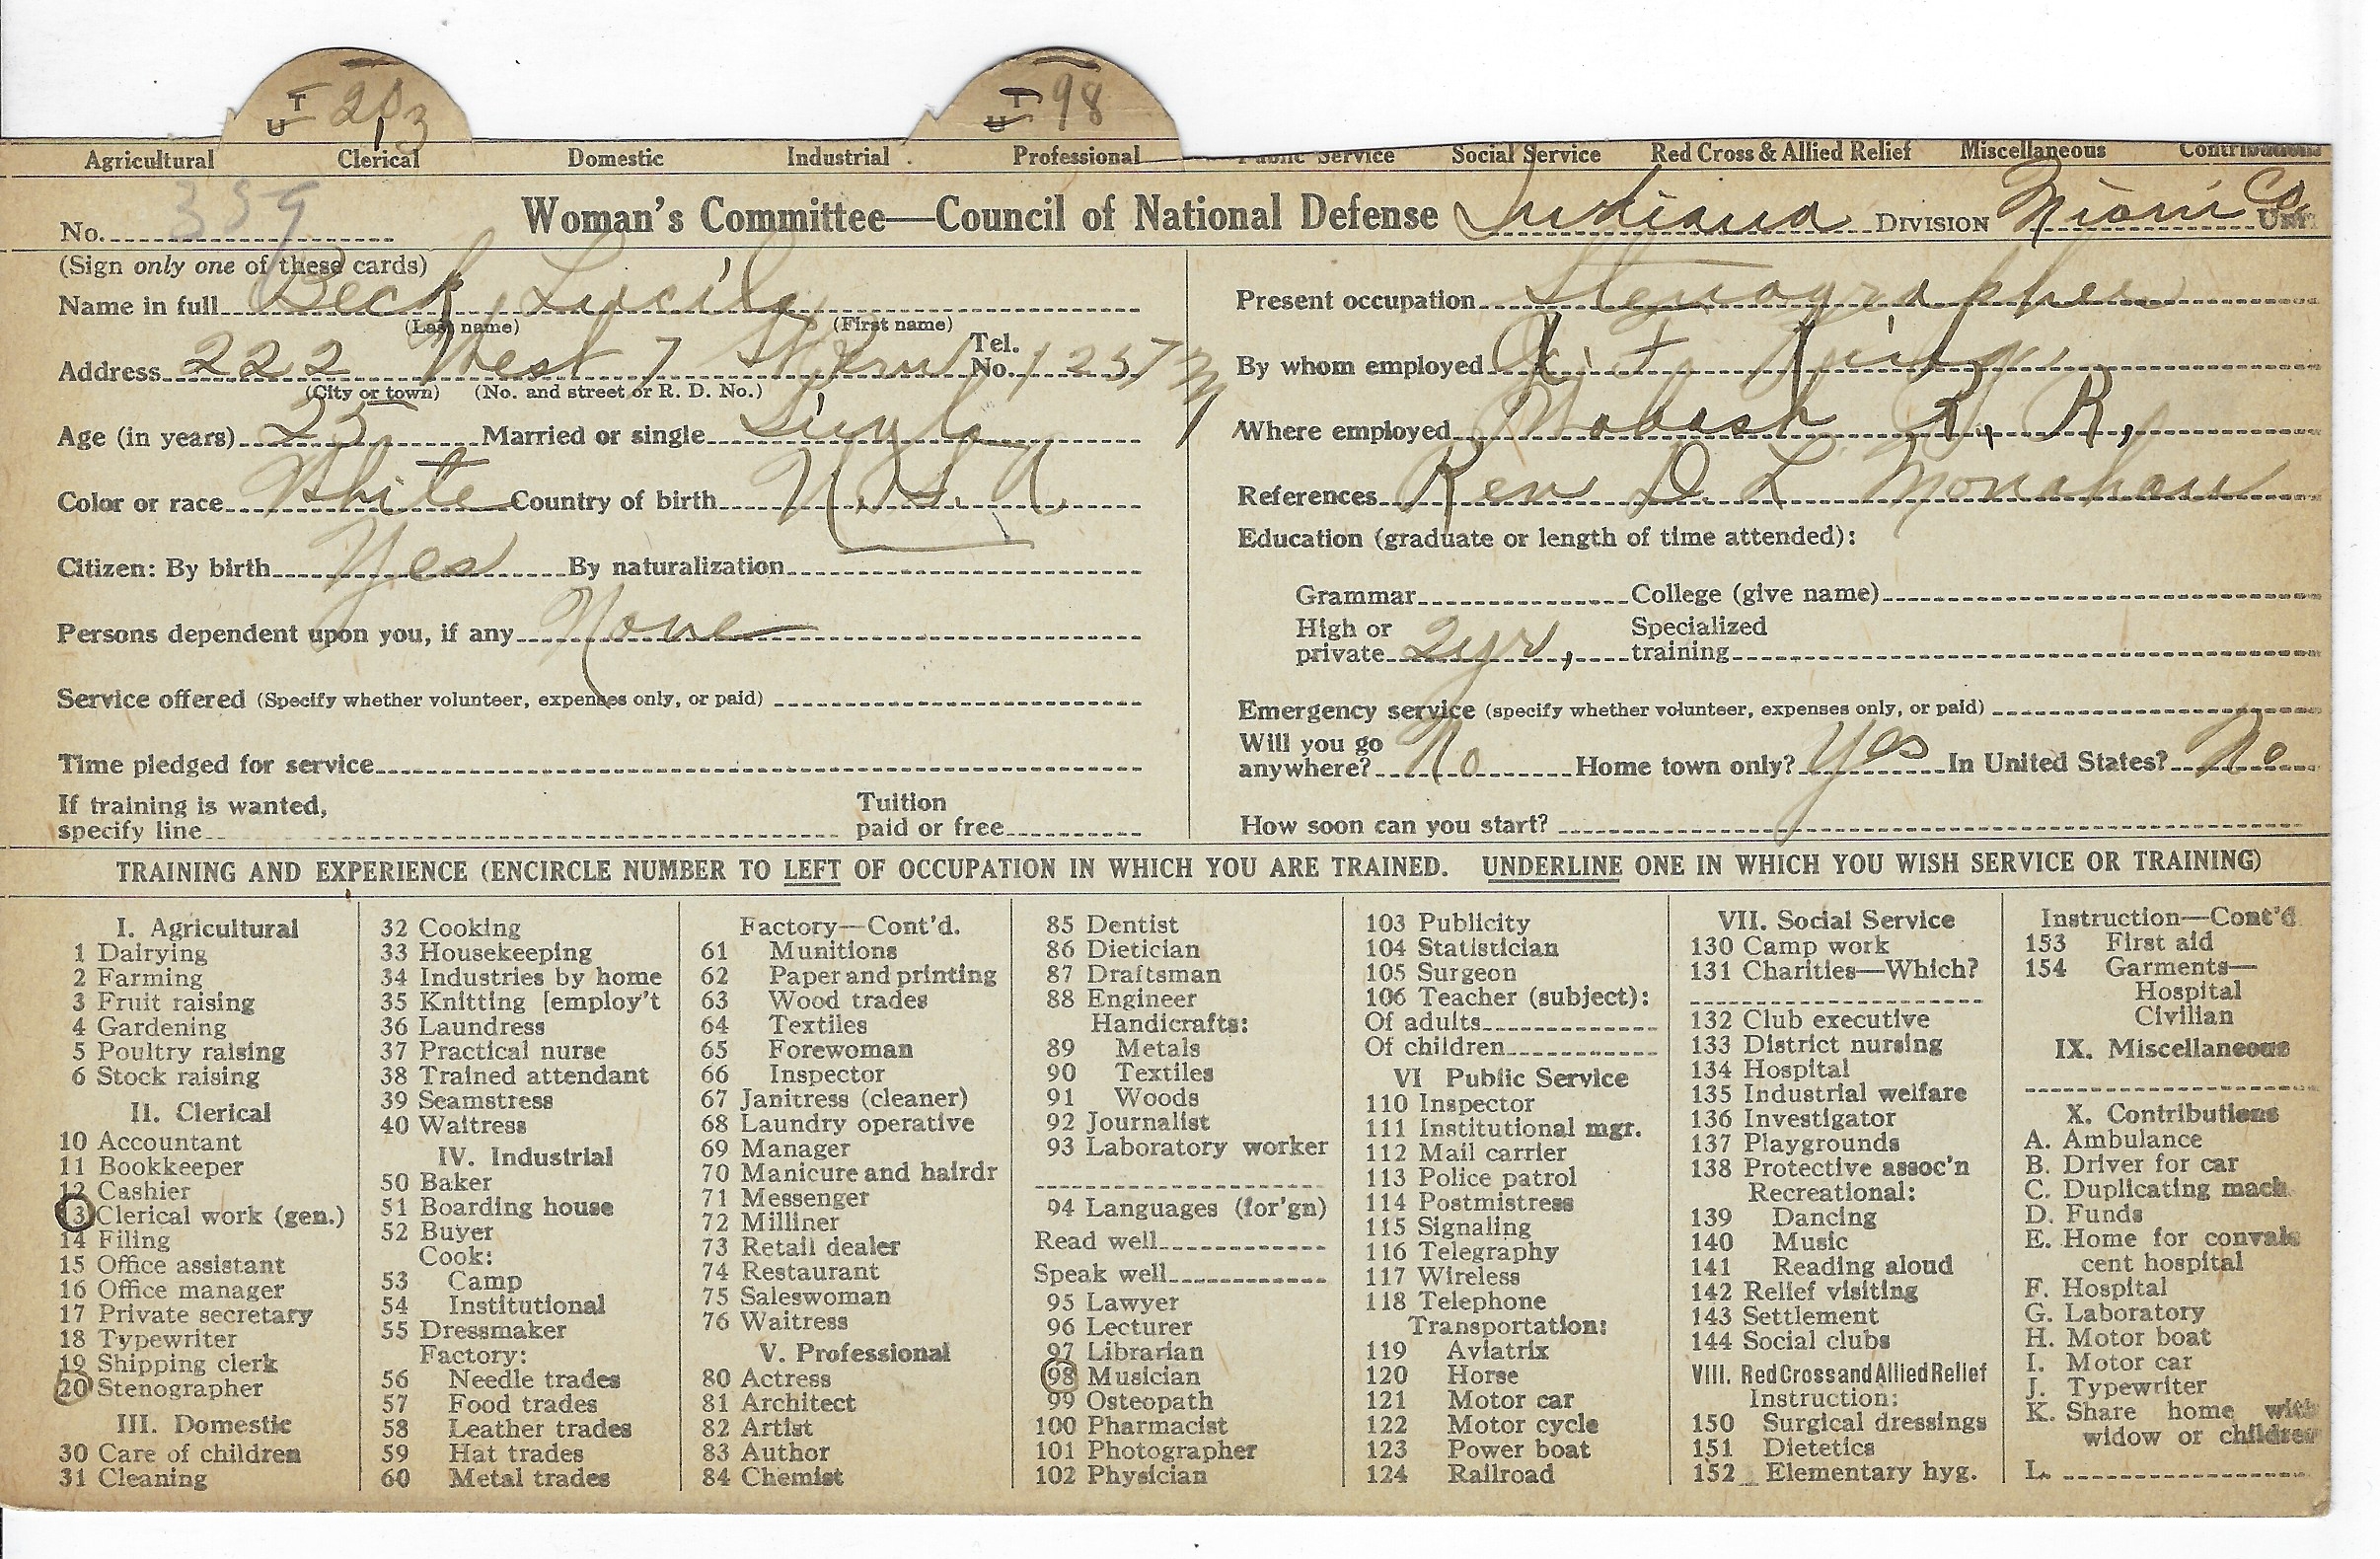 T U 20 13
T U 98
Agricultural Clerical Domestic Industrial Professional Public Service Social Service Red Cross & Allied Relief Miscellaneous Contributions
No. 359 Woman's Committee—Council of National Defense Indiana DIVISION Miami Co. UNIT
(Sign only one of these cards)
Name in full Beck, Lucile
(Last name) (First name)
Address 222 West 7 St Peru Tel. No. 1257
(City or town) (No. and street or R. D. No.)
Age (in years) 25 Married or single Single
Color or race White Country of birth U.S.A.
Citizen: By birth Yes By naturalization
Persons dependent upon you, if any None
Service offered (Specify whether volunteer, expenses only, or paid)
Time pledged for service
If training is wanted, specify line Tuition paid or free
Present occupation Stenographer
By whom employed
Where employed Wabash R, R,
References Rev D L Monahan
Education (graduate or length of time attended):
Grammar College (give name)
High or private 2 yr, Specialized training
Emergency service (specify whether volunteer, expenses only, or paid)
Will you go anywhere? No Home town only? Yes In United States? No
How soon can you start?
TRAINING AND EXPERIENCE (ENCIRCLE NUMBER TO LEFT OF OCCUPATION IN WHICH YOU ARE TRAINED. UNDERLINE ONE IN WHICH YOU WISH SERVICE OR TRAINING)
I. Agricultural
1 Dairying
2 Farming
3 Fruit raising
4 Gardening
5 Poultry raising
6 Stock raising
II. Clerical
10 Accountant
11 Bookkeeper
12 Cashier
13 Clerical work (gen.)
14 Filing
15 Office assistant
16 Office manager
17 Private secretary
18 Typewriter
19 Shipping clerk
20 Stenographer
III. Domestic
30 Care of children
31 Cleaning
32 Cooking
33 Housekeeping
34 Industries by home
35 Knitting [employ't
36 Laundress
37 Practical nurse
38 Trained attendant
39 Seamstress
40 Waitress
IV. Industrial
50 Baker
51 Boarding house
52 Buyer
Cook:
53 Camp
54 Institutional
55 Dressmaker
Factory:
56 Needle trades
57 Food trades
58 Leather trades
59 Hat trades
60 Metal trades
Factory—Cont'd.
61 Munitions
62 Paper and printing
63 Wood trades
64 Textiles
65 Forewoman
66 Inspector
67 Janitress (cleaner)
68 Laundry operative
69 Manager
70 Manicure and hairdr
71 Messenger
72 Milliner
73 Retail dealer
74 Restaurant
75 Saleswoman
76 Waitress
V. Professional
80 Actress
81 Architect
82 Artist
83 Author
84 Chemist
85 Dentist
86 Dietician
87 Draftsman
88 Engineer
Handicrafts:
89 Metals
90 Textiles
91 Woods
92 Journalist
93 Laboratory worker
94 Languages (for'gn)
Read well
Speak well
95 Lawyer
96 Lecturer
97 Librarian
98 Musician
99 Osteopath
100 Pharmacist
101 Photographer
102 Physician
103 Publicity
104 Statistician
105 Surgeon
106 Teacher (subject):
Of adults
Of children
VI Public Service
110 Inspector
111 Institutional mgr.
112 Mail carrier
113 Police patrol
114 Postmistress
115 Signaling
116 Telegraphy
117 Wireless
118 Telephone
Transportation:
119 Aviatrix
120 Horse
121 Motor car
122 Motor cycle
123 Power boat
124 Railroad
VII. Social Service
130 Camp work
131 Charities—Which?
132 Club executive
133 District nursing
134 Hospital
135 Industrial welfare
136 Investigator
137 Playgrounds
138 Protective assoc'n
Recreational:
139 Dancing
140 Music
141 Reading aloud
142 Relief visiting
143 Settlement
144 Social clubs
VIII. Red Cross and Allied Relief
Instruction:
150 Surgical dressings
151 Dietetics
152 Elementary hyg.
Instruction—Cont'd
153 First aid
154 Garments—
Hospital
Civilian
IX. Miscellaneous
X. Contributions
A. Ambulance
B. Driver for car
C. Duplicating mach.
D. Funds
E. Home for convales
cent hospital
F. Hospital
G. Laboratory
H. Motor boat
I. Motor car
J. Typewriter
K. Share home with
widow or children
L.